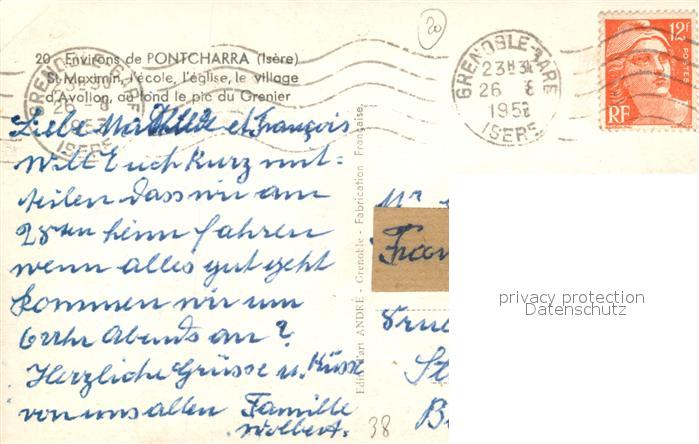 20
20 Environs de PONTCHARRA (Isère)
St-Maximin, l'école, l'église, le village
d'Avallon, au fond le pic du Grenier
GRENOBLE GARE
26 8
ISERE
GRENOBLE GARE
23H30
26 8
195
ISERE
12F
POSTES
RF
Liebe et François
Will Euch kurz mit-
teilen dass wir am
28ten heim fahren
wenn alles gut geht
kommen wir um
6 Uhr Abends an?
Herzliche Grüsse u. Küsse
von uns allen Famille
Wolbert.
Edit. d'art ANDRÉ - Grenoble - Fabrication Française.
Mr
Fran
St
B
38
privacy protection
Datenschutz